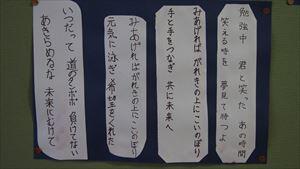 勉強中 君と笑った あの時間
笑える時を 夢見て待つよ
みあげれば がれきの上にこいのぼり
手と手をつなぎ 共に未来へ
みあげれば がれきの上にこいのぼり
元気に泳ぎ 希望をくれた
いつだって 道のタンポポ 負けてない
あきらめるな 未来にむけて